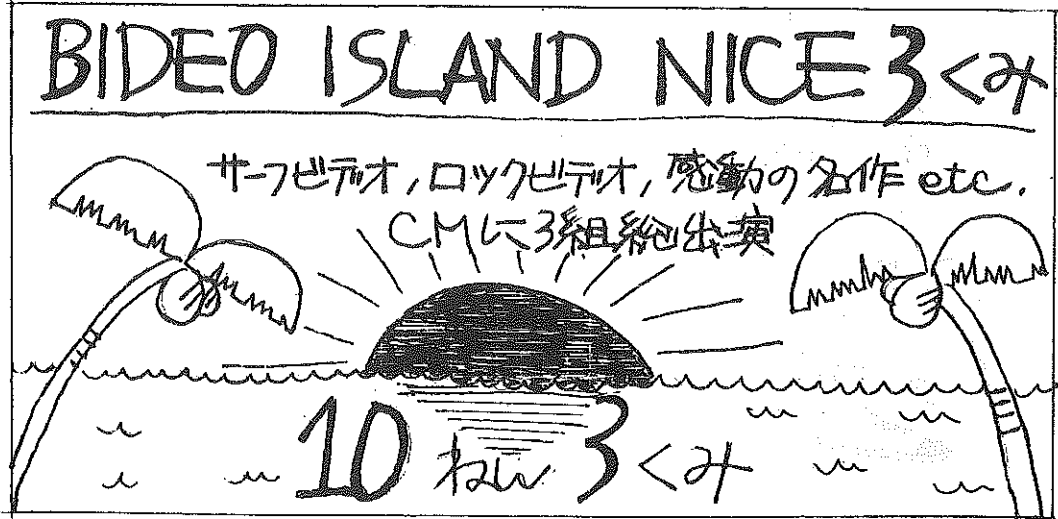 BIDEO ISLAND NICE 3くみ
サーフビデオ,ロックビデオ,感動の名作 etc.
CMに3組総出演
10ねん3くみ